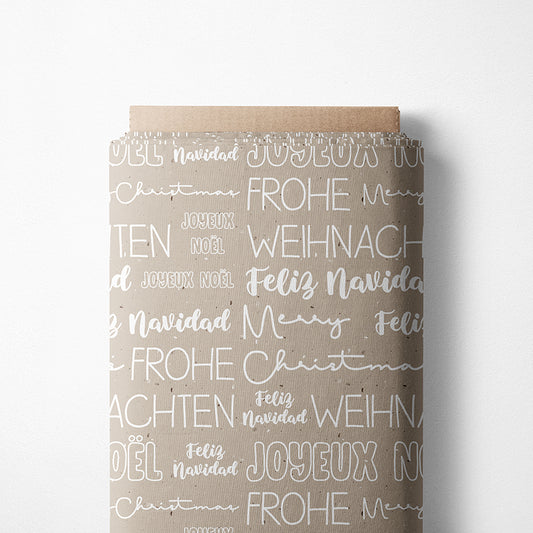 OËL Navidad JOYEUX NO
Christmas FROHE Merry
JOYEUX
NOËL
HTEN WEIHNACH
JOYEUX NOËL Feliz Navida
Navidad Merry Feliz
FROHE Christma
ACHTEN Feliz
Navidad WEIHNACH
OËL Feliz
Navidad JOYEUX NO
Christmas FROHE Merry
JOYEUX